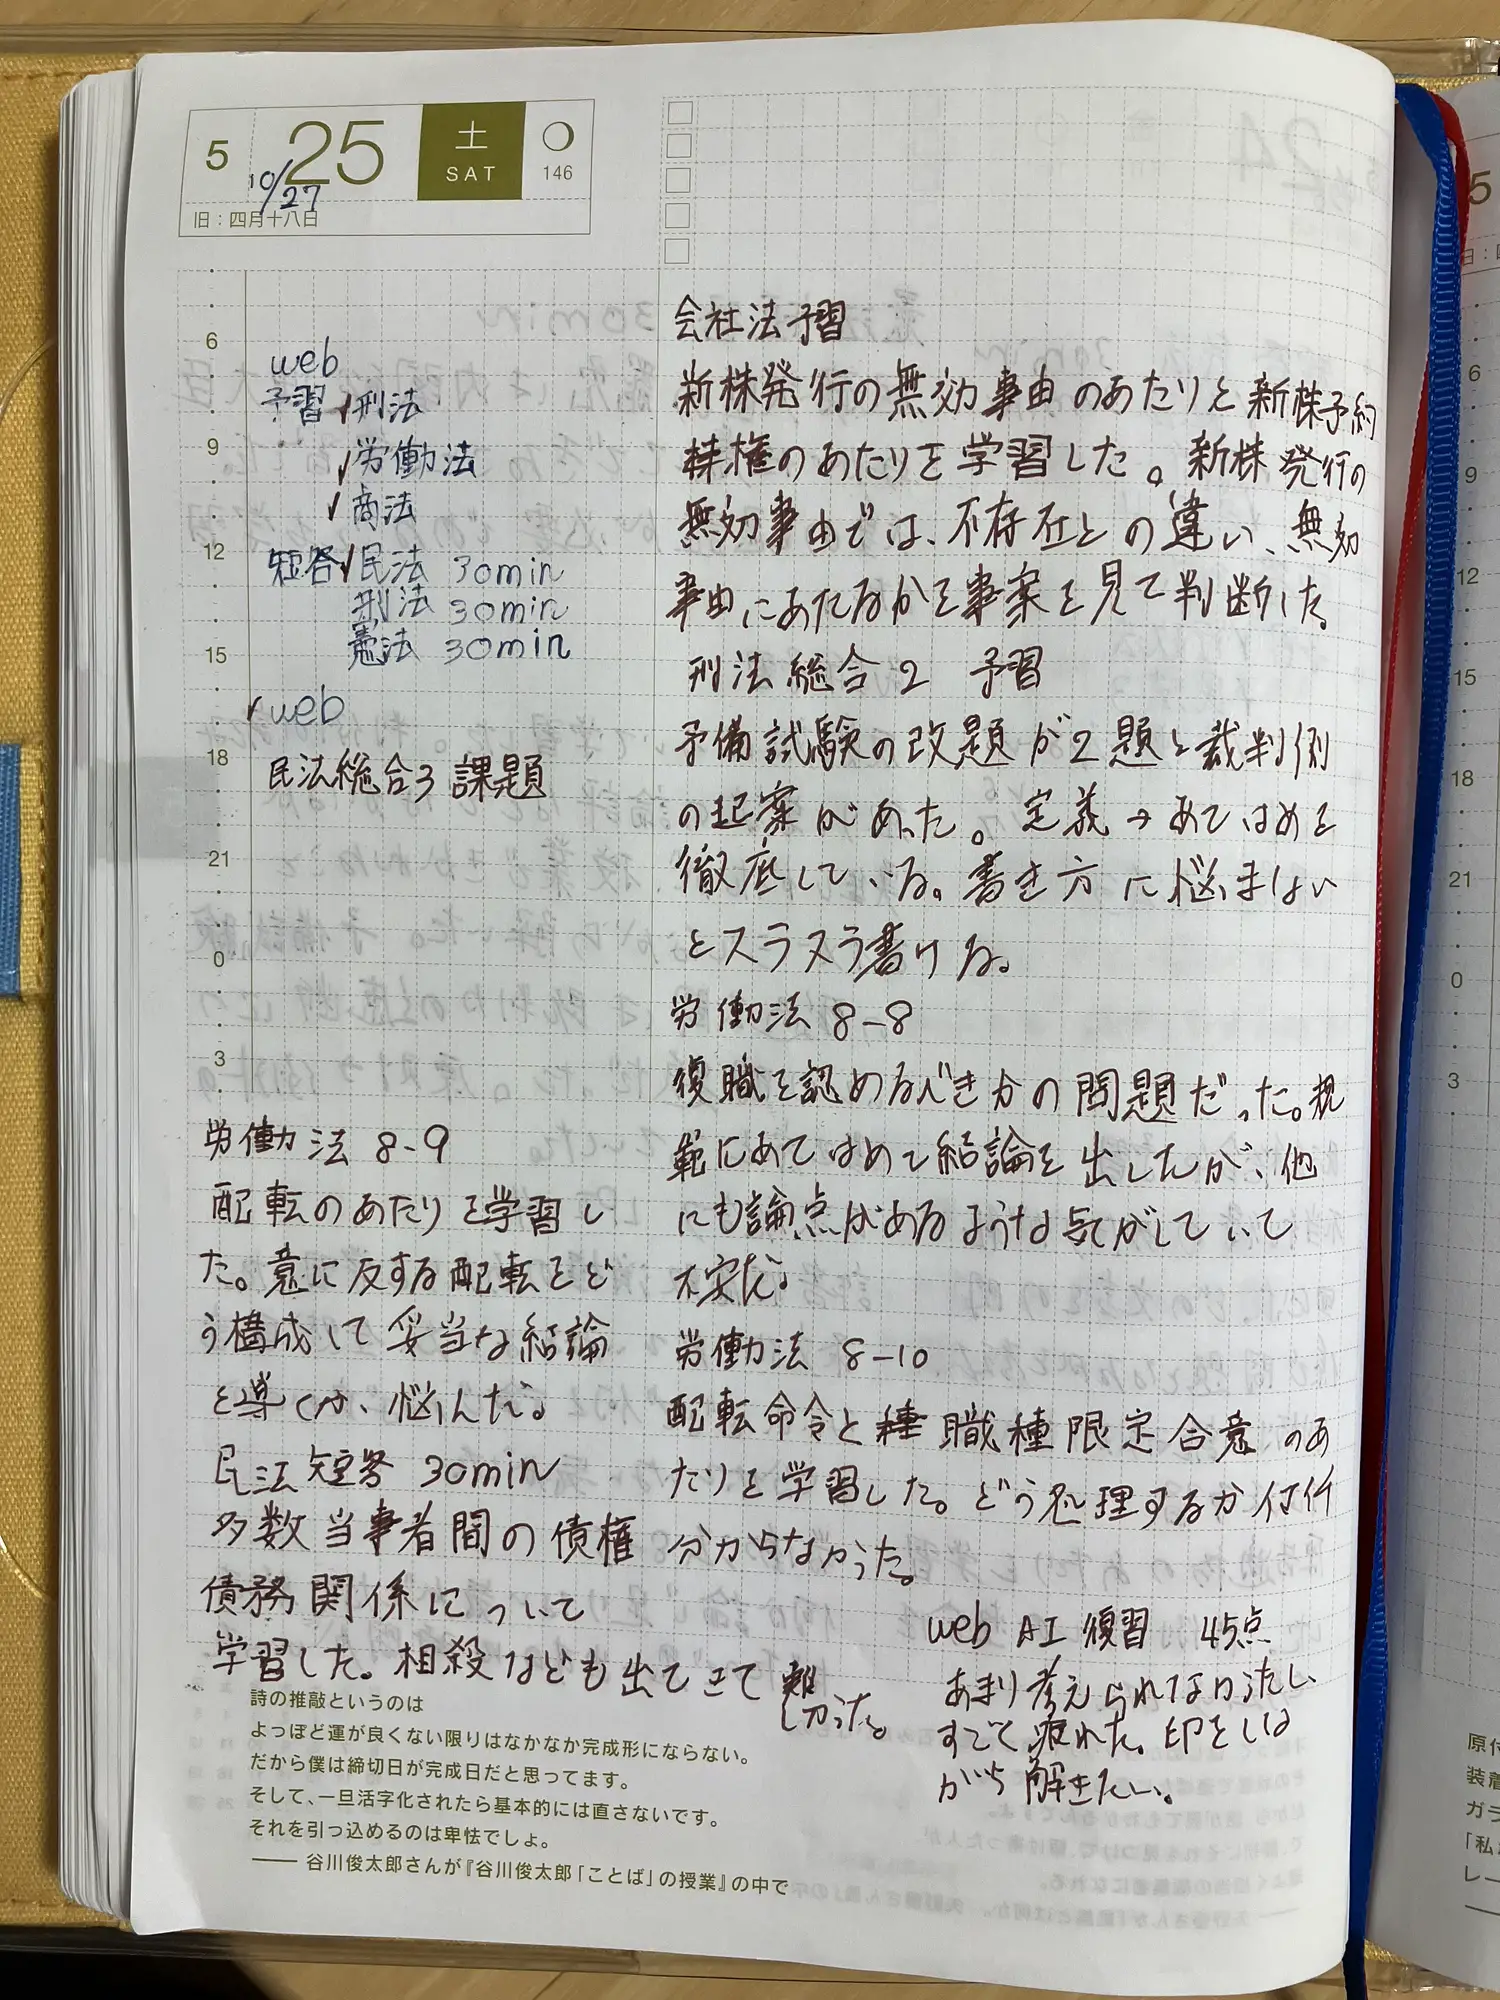 5
25
土
SAT
146
10/27
旧：四月十八日
6
9
12
15
18
21
0
3
web
予習 ✓刑法
✓労働法
✓商法
短答✓民法 30min
刑法 30min
憲法 30min
✓web
民法総合3 課題
労働法 8-9
配転のあたりを学習し
た。意に反する配転をど
う構成して妥当な結論
を導くか、悩んだ。
民法短答 30min
多数当事者間の債権
債務関係について
学習した。相殺なども出てきて難
しかった。
会社法予習
新株発行の無効事由のあたりと新株予約
権のあたりを学習した。新株発行の
無効事由では、不存在との違い、無効
事由にあたるかを事案を見て判断した。
刑法総合2 予習
予備試験の改題が2題と裁判例
の起案があった。定義→あてはめを
徹底している。書き方に悩まない
とスラスラ書ける。
労働法 8-8
復職を認めるべきかの問題だった。規
範にあてはめて結論を出したが、他
にも論点があるような気がしていて
不安だ。
労働法 8-10
配転命令と職種限定合意のあ
たりを学習した。どう処理するか何
分からなかった。
web AI 復習 45点
あまり考えられてなかったし、
すごく疲れた。印をしな
がら解きたい。
詩の推敲というのは
よっぽど運が良くない限りはなかなか完成形にならない。
だから僕は締切日が完成日だと思ってます。
そして、一旦活字化されたら基本的には直さないです。
それを引っ込めるのは卑怯でしょ。
―― 谷川俊太郎さんが『谷川俊太郎「ことば」の授業』の中で
5
6
9
12
15
18
21
0
3
原付
装着
ガラ
「私
レー